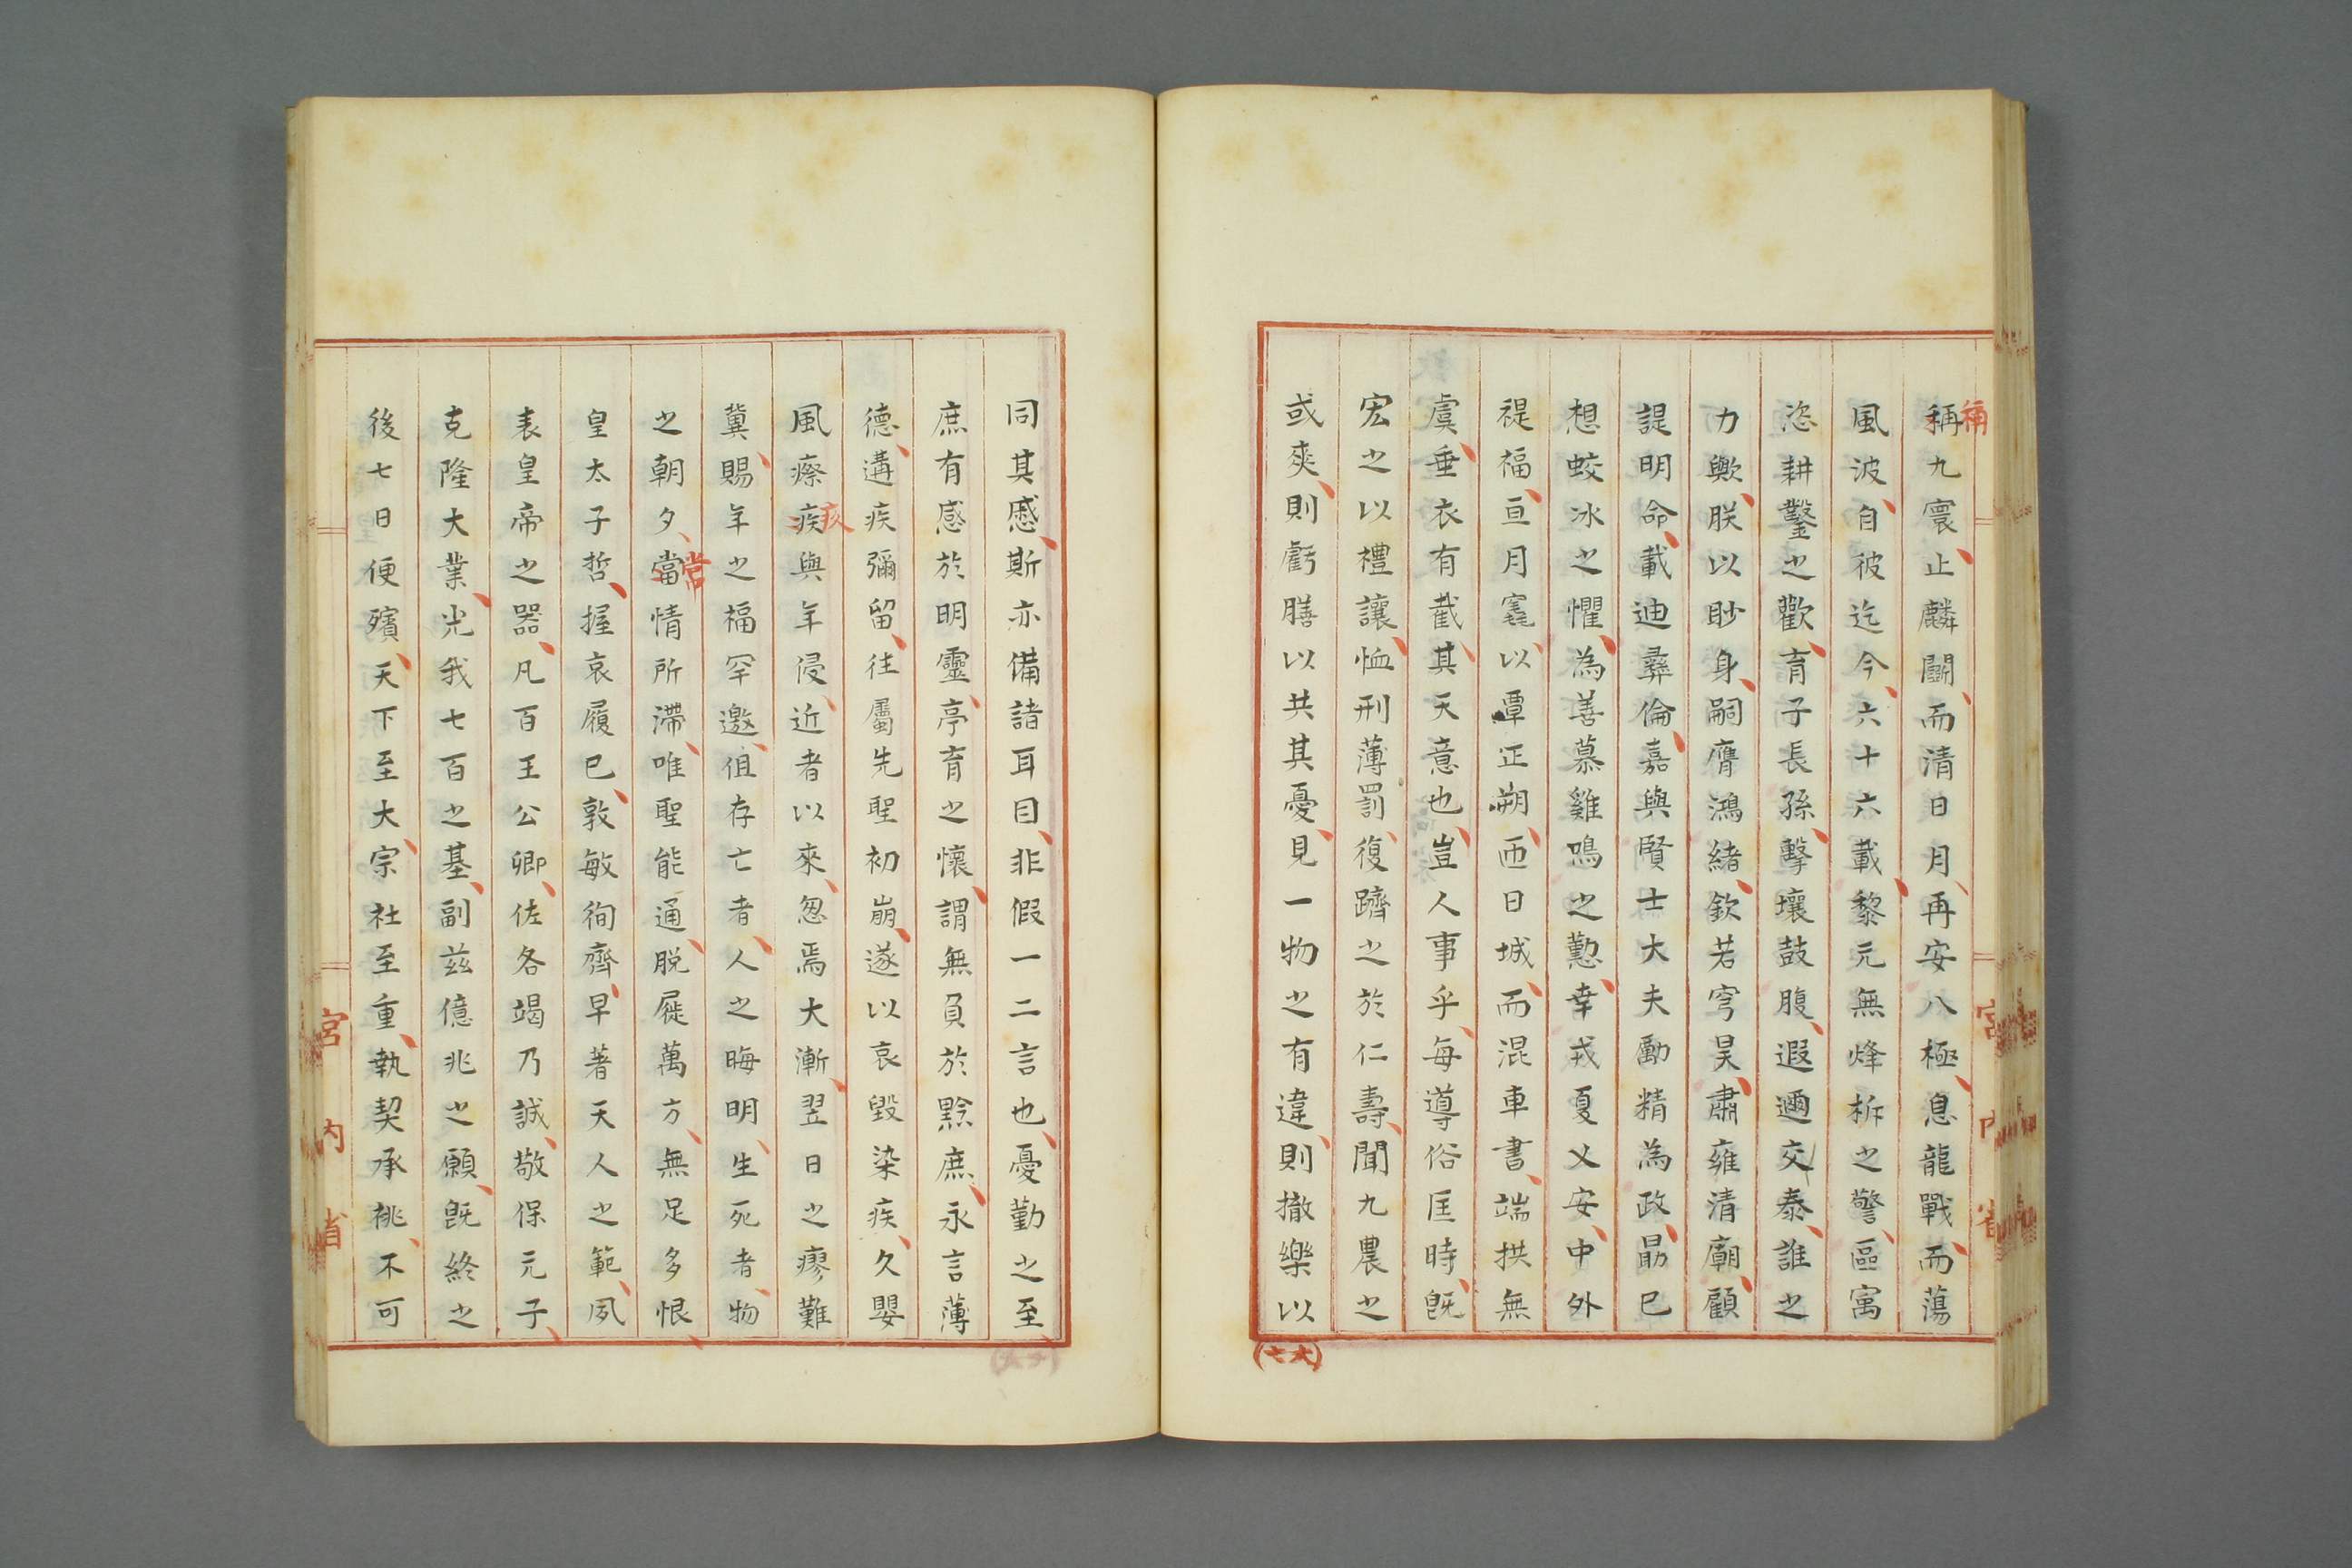 稱九寰止麟鬭而清日月再安八極息龍戰而蕩
風波自彼迄今六十六載黎元無烽柝之警區寓
恣耕鑿之歡育子長孫擊壤鼓腹遐邇交泰誰之
力歟朕以眇身嗣膺鴻緒欽若穹昊肅雍清廟顧
諟明命載迪彝倫嘉與賢士大夫勵精為政勗已
想蛟冰之懼為善慕雞鳴之懃幸戎夏乂安中外
禔福亘月窟以覃正朔迊日城而混車書端拱無
虞垂衣有截其天意也豈人事乎每導俗匡時既
宏之以禮讓恤刑薄罰復躋之於仁壽聞九農之
或爽則虧膳以共其憂見一物之有違則撤樂以
同其慼斯亦備諸耳目非假一二言也憂勤之至
庶有感於明靈亭育之懷謂無負於黔庶永言薄
德遘疾彌留往屬先聖初崩遂以哀毀染疾久嬰
風瘵疾與年侵近者以來怱焉大漸翌日之瘳難
冀賜年之福罕邀但存亡者人之晦明生死者物
之朝夕當情所滯唯聖能通脫屣萬方無足多恨
皇太子哲握哀履巳敦敏徇齊早著天人之範夙
表皇帝之器凡百王公卿佐各竭乃誠敬保元子
克隆大業光我七百之基副兹億兆之願既終之
後七日便殯天下至大宗社至重執契承祧不可
痎
當
宮內省
宮內省